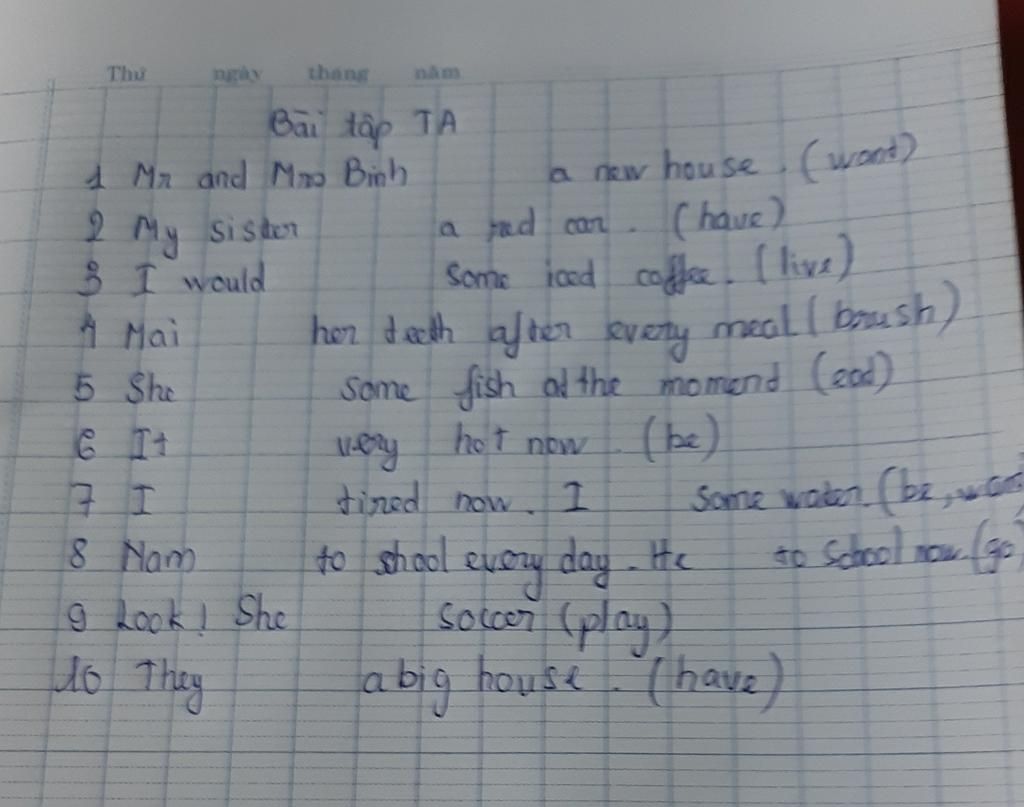 Thứ ngày tháng năm
Bài tập TA
1 Mr and Mrs Binh a new house. (want)
2 My sister a red car. (have)
3 I would some iced coffee. (live)
4 Mai her teeth after every meal (brush)
5 She some fish at the moment (eat)
6 It very hot now (be)
7 I tired now. I some water. (be, wan
8 Nam to shool every day. He to school now. (go)
9 Look! She soccer (play)
10 They a big house. (have)